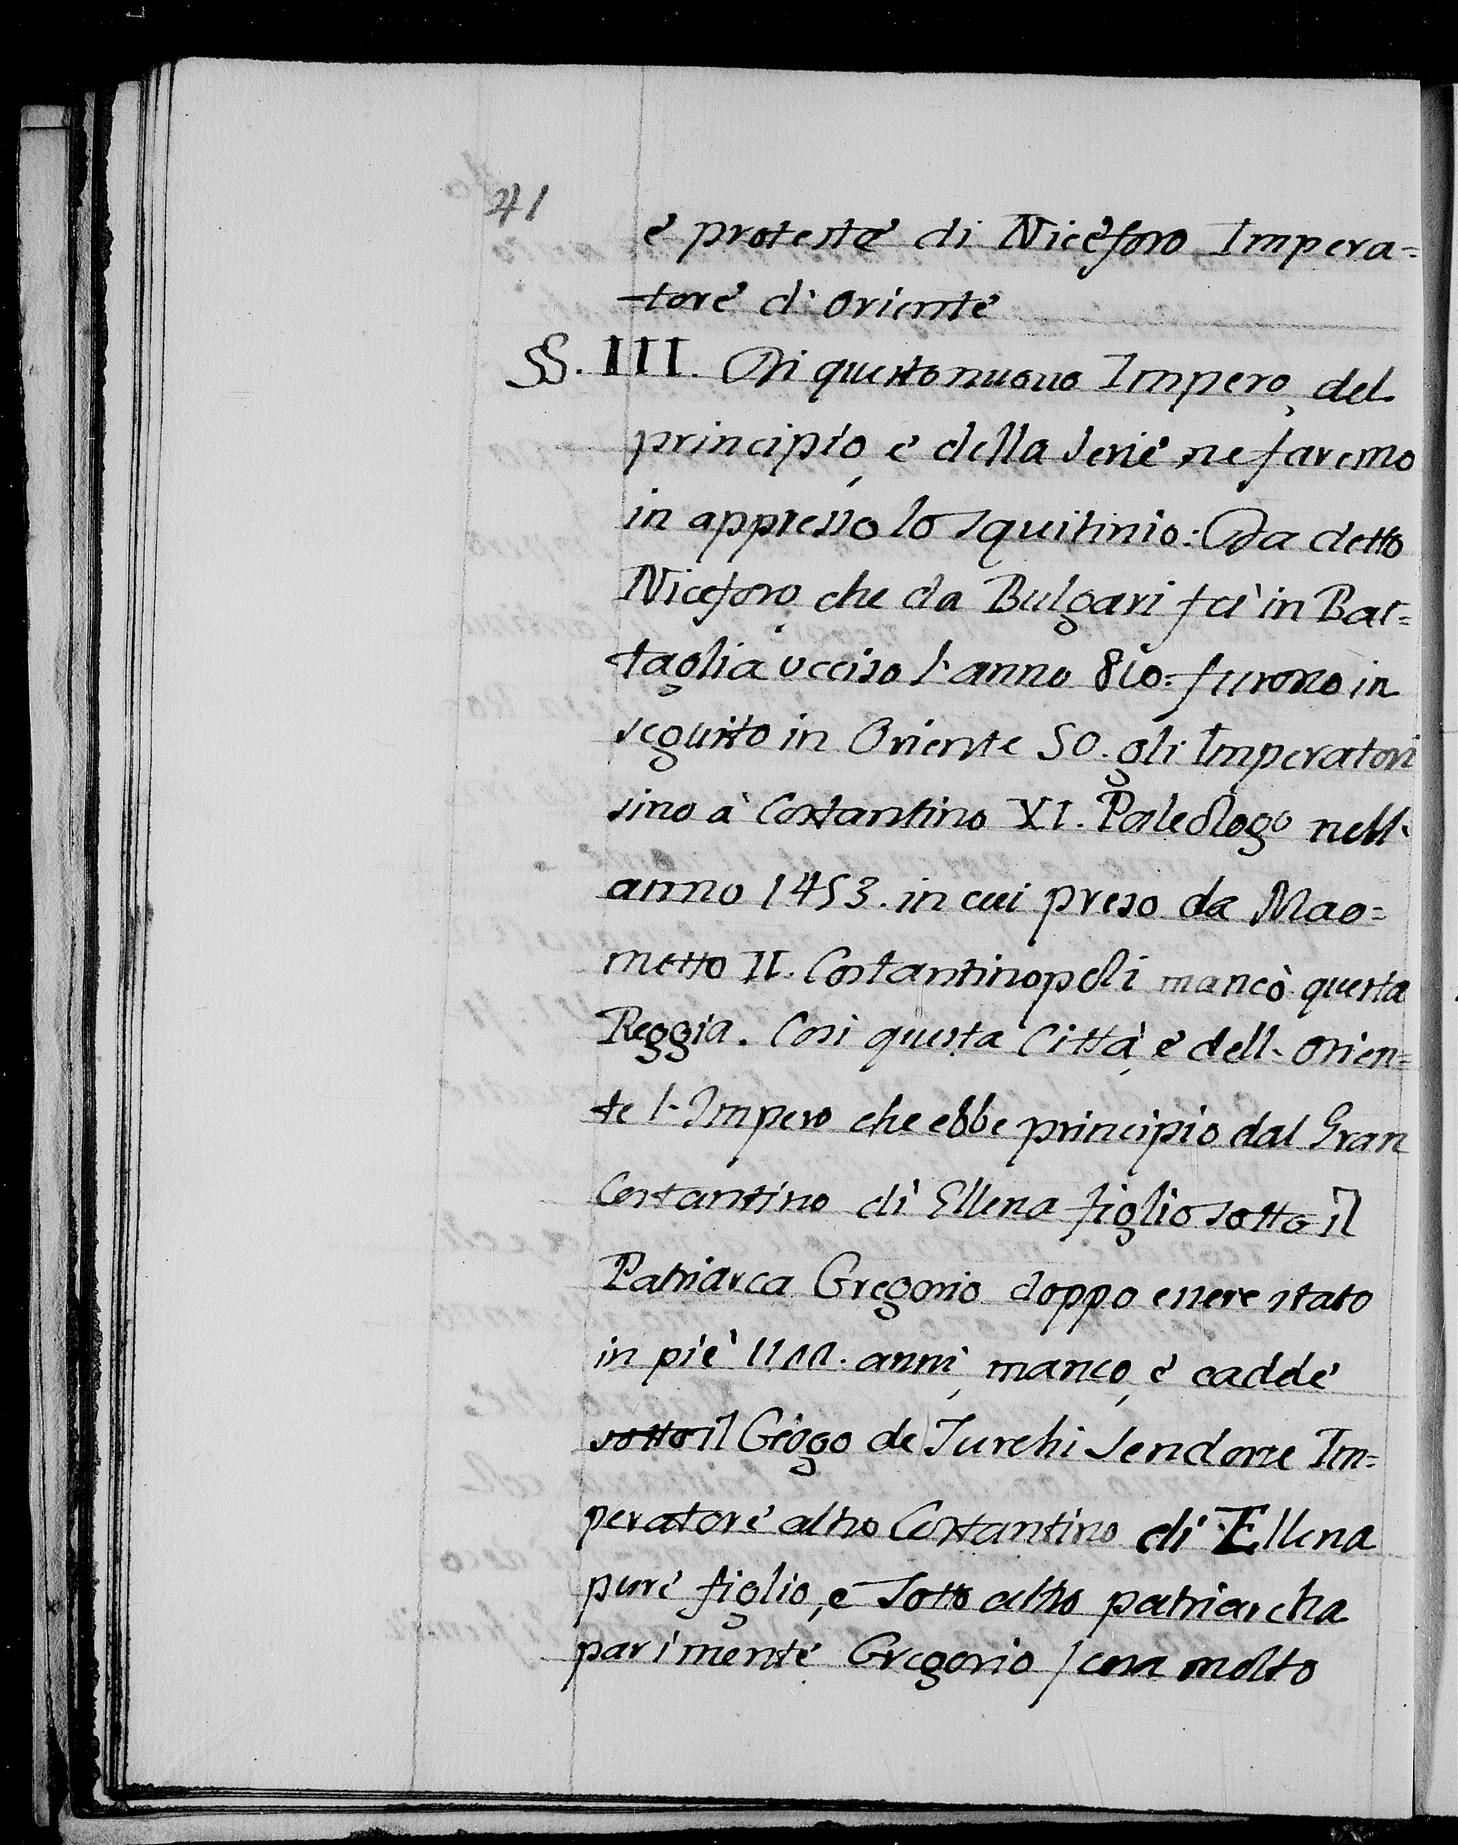 41
e proteste di Niceforo Impera=
tore d'oriente
§§. III. Di questo nuovo Impero, del
principio, e della serie ne faremo
in appresso lo squitinio: Da detto
Niceforo, che da Bulgari fù in Bat=
taglia ucciso l'anno 810= furono in
seguito in Oriente 50. gli Imperatori
sino à Costantino XI. Paleologo nell'
anno 1453. in cui preso da Mao=
metto II. Costantinopoli mancò questa
Reggia. Cosi questa Città, e dell'Orien=
te l'Impero che ebbe principio dal Gran
Costantino di Ellena figlio sotto il
Patriarca Gregorio doppo essere stato
in piè anni, manco, e cadde
sotto il Giogo de Turchi sendone Im=
peratore altro Costantino di Ellena
pure figlio, e sotto altro patriarcha
parimente Gregorio / cosa molto